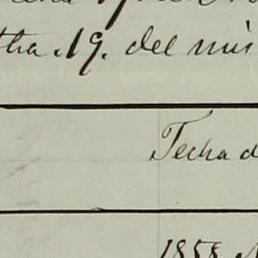 tha. 19. del mis
Fecha d
1858